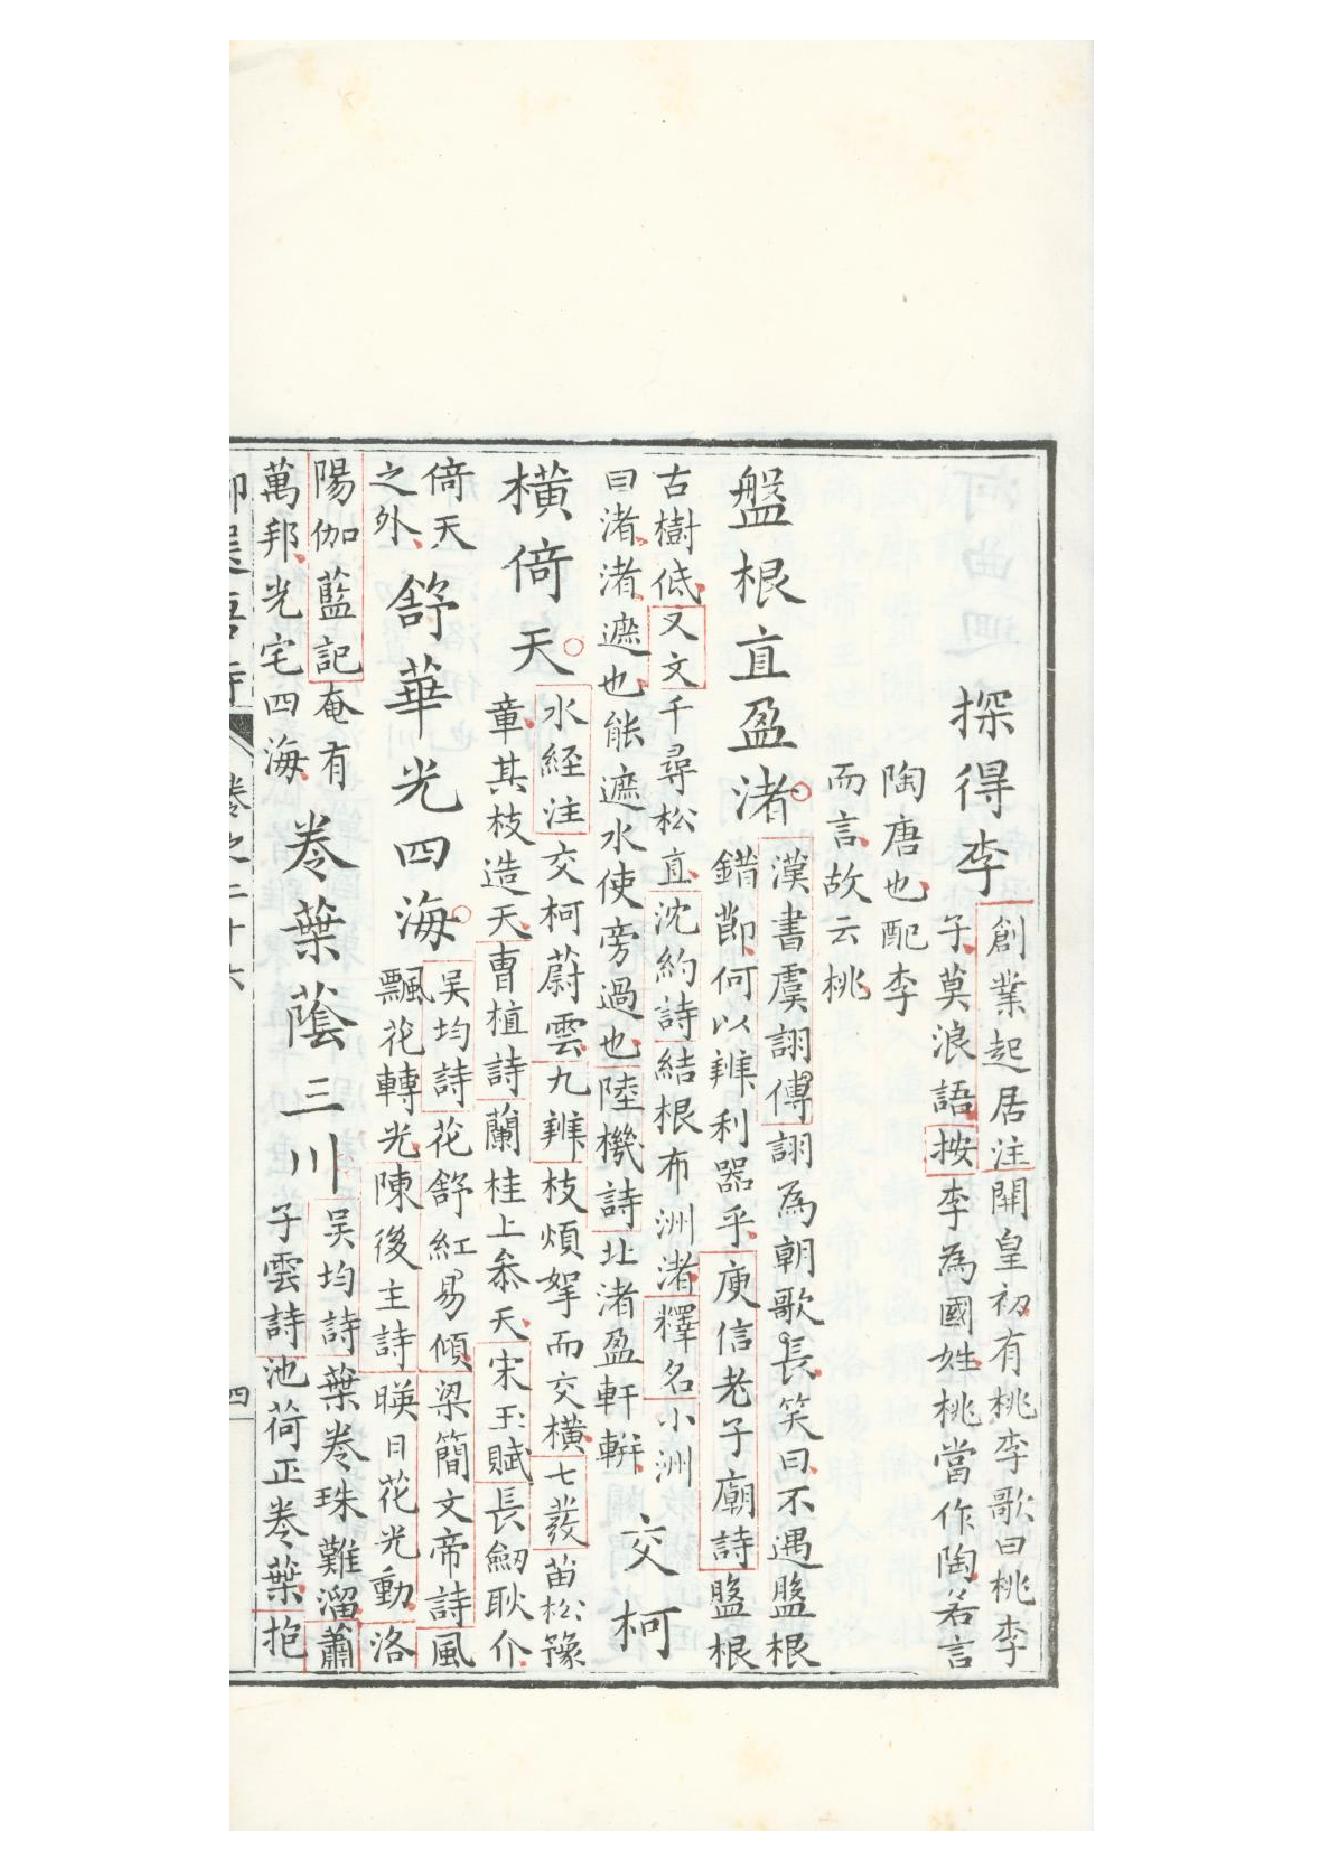 探得李
創業起居注開皇初有桃李歌曰桃李
子莫浪語按李為國姓桃當作陶若言
陶唐也配李
而言故云桃
盤根直盈渚
漢書虞詡傳詡為朝歌長笑曰不遇盤根
錯節何以辨利器乎庾信老子廟詩盤根
古樹低又文千尋松直沈約詩結根布洲渚釋名小洲
曰渚渚遮也能遮水使旁過也陸機詩北渚盈軒軿
交柯
橫倚天
水經注交柯蔚雲九辨枝煩挐而交橫七發苗松豫
章其枝造天曹植詩蘭桂上叅天宋玉賦長劒耿介
倚天
之外
舒華光四海
吴均詩花舒紅易傾梁簡文帝詩風
飄花轉光陳後主詩暎日花光動洛
陽伽藍記奄有
萬邦光宅四海
卷葉蔭三川
吴均詩葉卷珠難溜蕭
子雲詩池荷正卷葉抱
卷之二十六
四